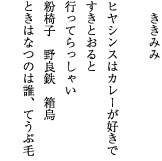 ききみみ
ヒヤシンスはカレーが好きで
すきとおると
行ってらっしゃい
粉椅子　野良鉄　箱烏
ときはなつのは誰、てうぶ毛